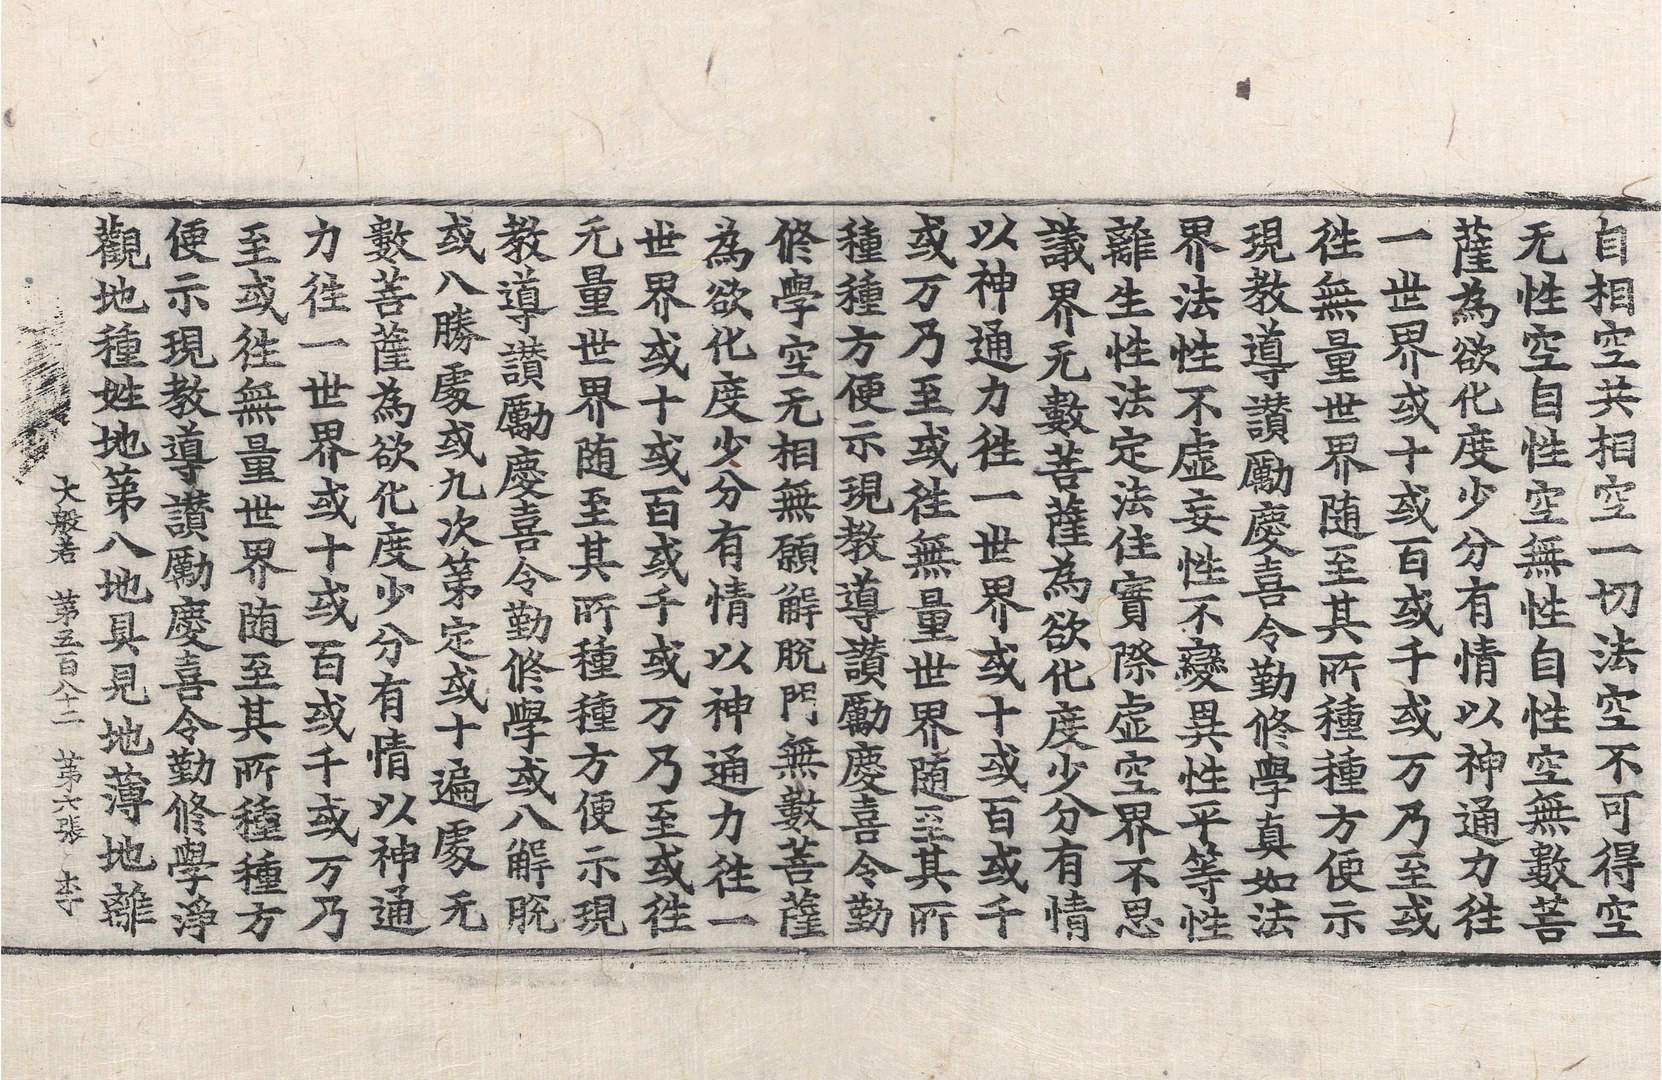 自相空共相空一切法空不可得空
无性空自性空無性自性空無數菩
薩為欲化度少分有情以神通力往
一世界或十或百或千或万乃至或
往無量世界随至其所種種方便示
現教導讃勵慶喜令勤修學真如法
界法性不虛妄性不變異性平等性
離生性法定法住實際虛空界不思
議界无數菩薩為欲化度少分有情
以神通力往一世界或十或百或千
或万乃至或往無量世界随至其所
種種方便示現教導讃勵慶喜令勤
修學空无相無願解脫門無數菩薩
為欲化度少分有情以神通力往一
世界或十或百或千或万乃至或往
无量世界随至其所種種方便示現
教導讃勵慶喜令勤修學或八解脫
或八勝處或九次第定或十遍處无
數菩薩為欲化度少分有情以神通
力往一世界或十或百或千或万乃
至或往無量世界随至其所種種方
便示現教導讃勵慶喜令勤修學淨
觀地種姓地第八地具見地薄地離
大般若 第五百八十二 第六張 李